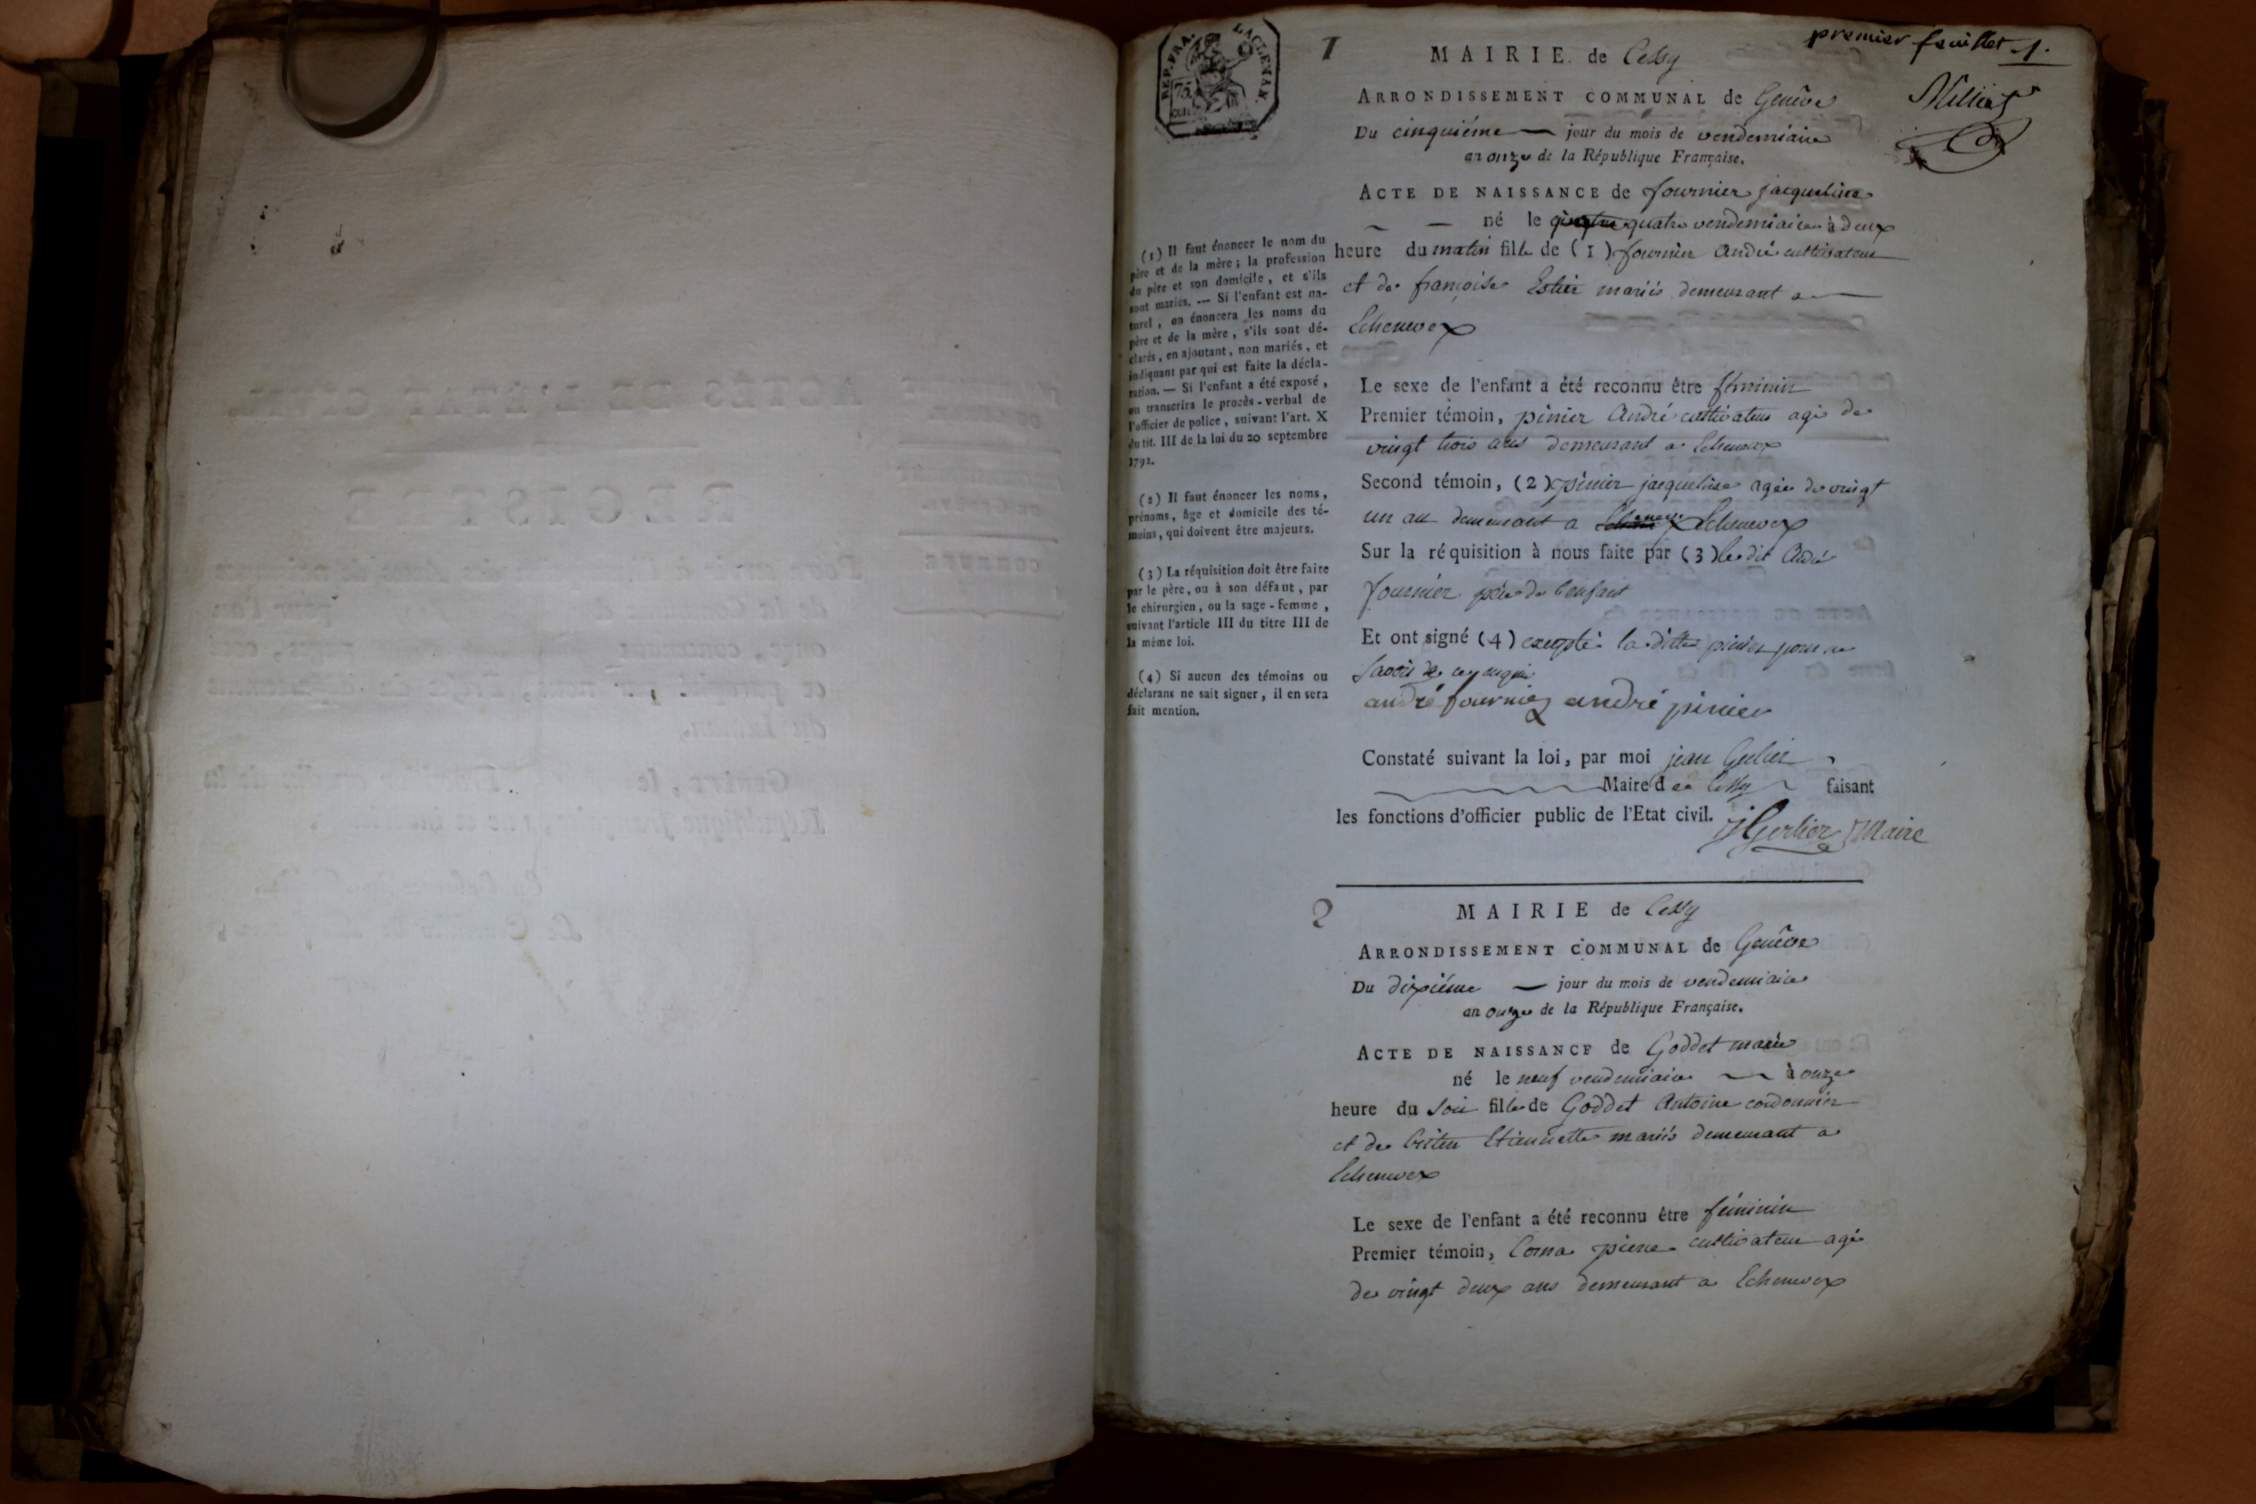 REP. FRA.
75
CEN.
premier feuillet 1.
1
MAIRIE de Cessy
ARRONDISSEMENT COMMUNAL de Genêve
Du cinquiéme jour du mois de vendemiaire
an onze de la République Française.
ACTE DE NAISSANCE de fournier jacqueline
né le quatre quatre vendemiaire à deux
heure du matin fille de (1) fournier André cultivateur
et de françoise Estier mariés demeurant a
Echenevex
Le sexe de l'enfant a été reconnu être féminin
Premier témoin, pinier André cultivateur agé de
vingt trois ans demeurant a Echenevex
Second témoin, (2) pinier jacqueline agée de vingt
un an demeurant a Echenevex
Sur la réquisition à nous faite par (3) le dit André
fournier père de l'enfant
Et ont signé (4) excepté la ditte pinier pour ne
savoir de ce requise
andré fournier andré pinier
Constaté suivant la loi, par moi jean Gerlier
Maire de Cessy faisant
les fonctions d'officier public de l'Etat civil. J Gerlier Maire
(1) Il faut énoncer le nom du
père et de la mère; la profession
du père et son domicile, et s'ils
sont mariés. — Si l'enfant est na-
turel, on énoncera les noms du
père et de la mère, s'ils sont dé-
clarés, en ajoutant, non mariés, et
indiquant par qui est faite la décla-
ration. — Si l'enfant a été exposé,
on transcrira le procès-verbal de
l'officier de police, suivant l'art. X
du tit. III de la loi du 20 septembre
1792.
(2) Il faut énoncer les noms,
prénoms, âge et domicile des té-
moins, qui doivent être majeurs.
(3) La réquisition doit être faite
par le père, ou à son défaut, par
le chirurgien, ou la sage-femme,
suivant l'article III du titre III de
la même loi.
(4) Si aucun des témoins ou
déclarans ne sait signer, il en sera
fait mention.
2
MAIRIE de Cessy
ARRONDISSEMENT COMMUNAL de Genêve
Du dixiéme jour du mois de vendemiaire
an onze de la République Française.
ACTE DE NAISSANCE de Goddet marie
né le neuf vendemiaire à onze
heure du soir fille de Goddet Antoine cordonnier
et de Etiennette mariés demeurant a
Echenevex
Le sexe de l'enfant a été reconnu être féminin
Premier témoin, pierre cultivateur agé
de vingt deux ans demeurant a Echenevex